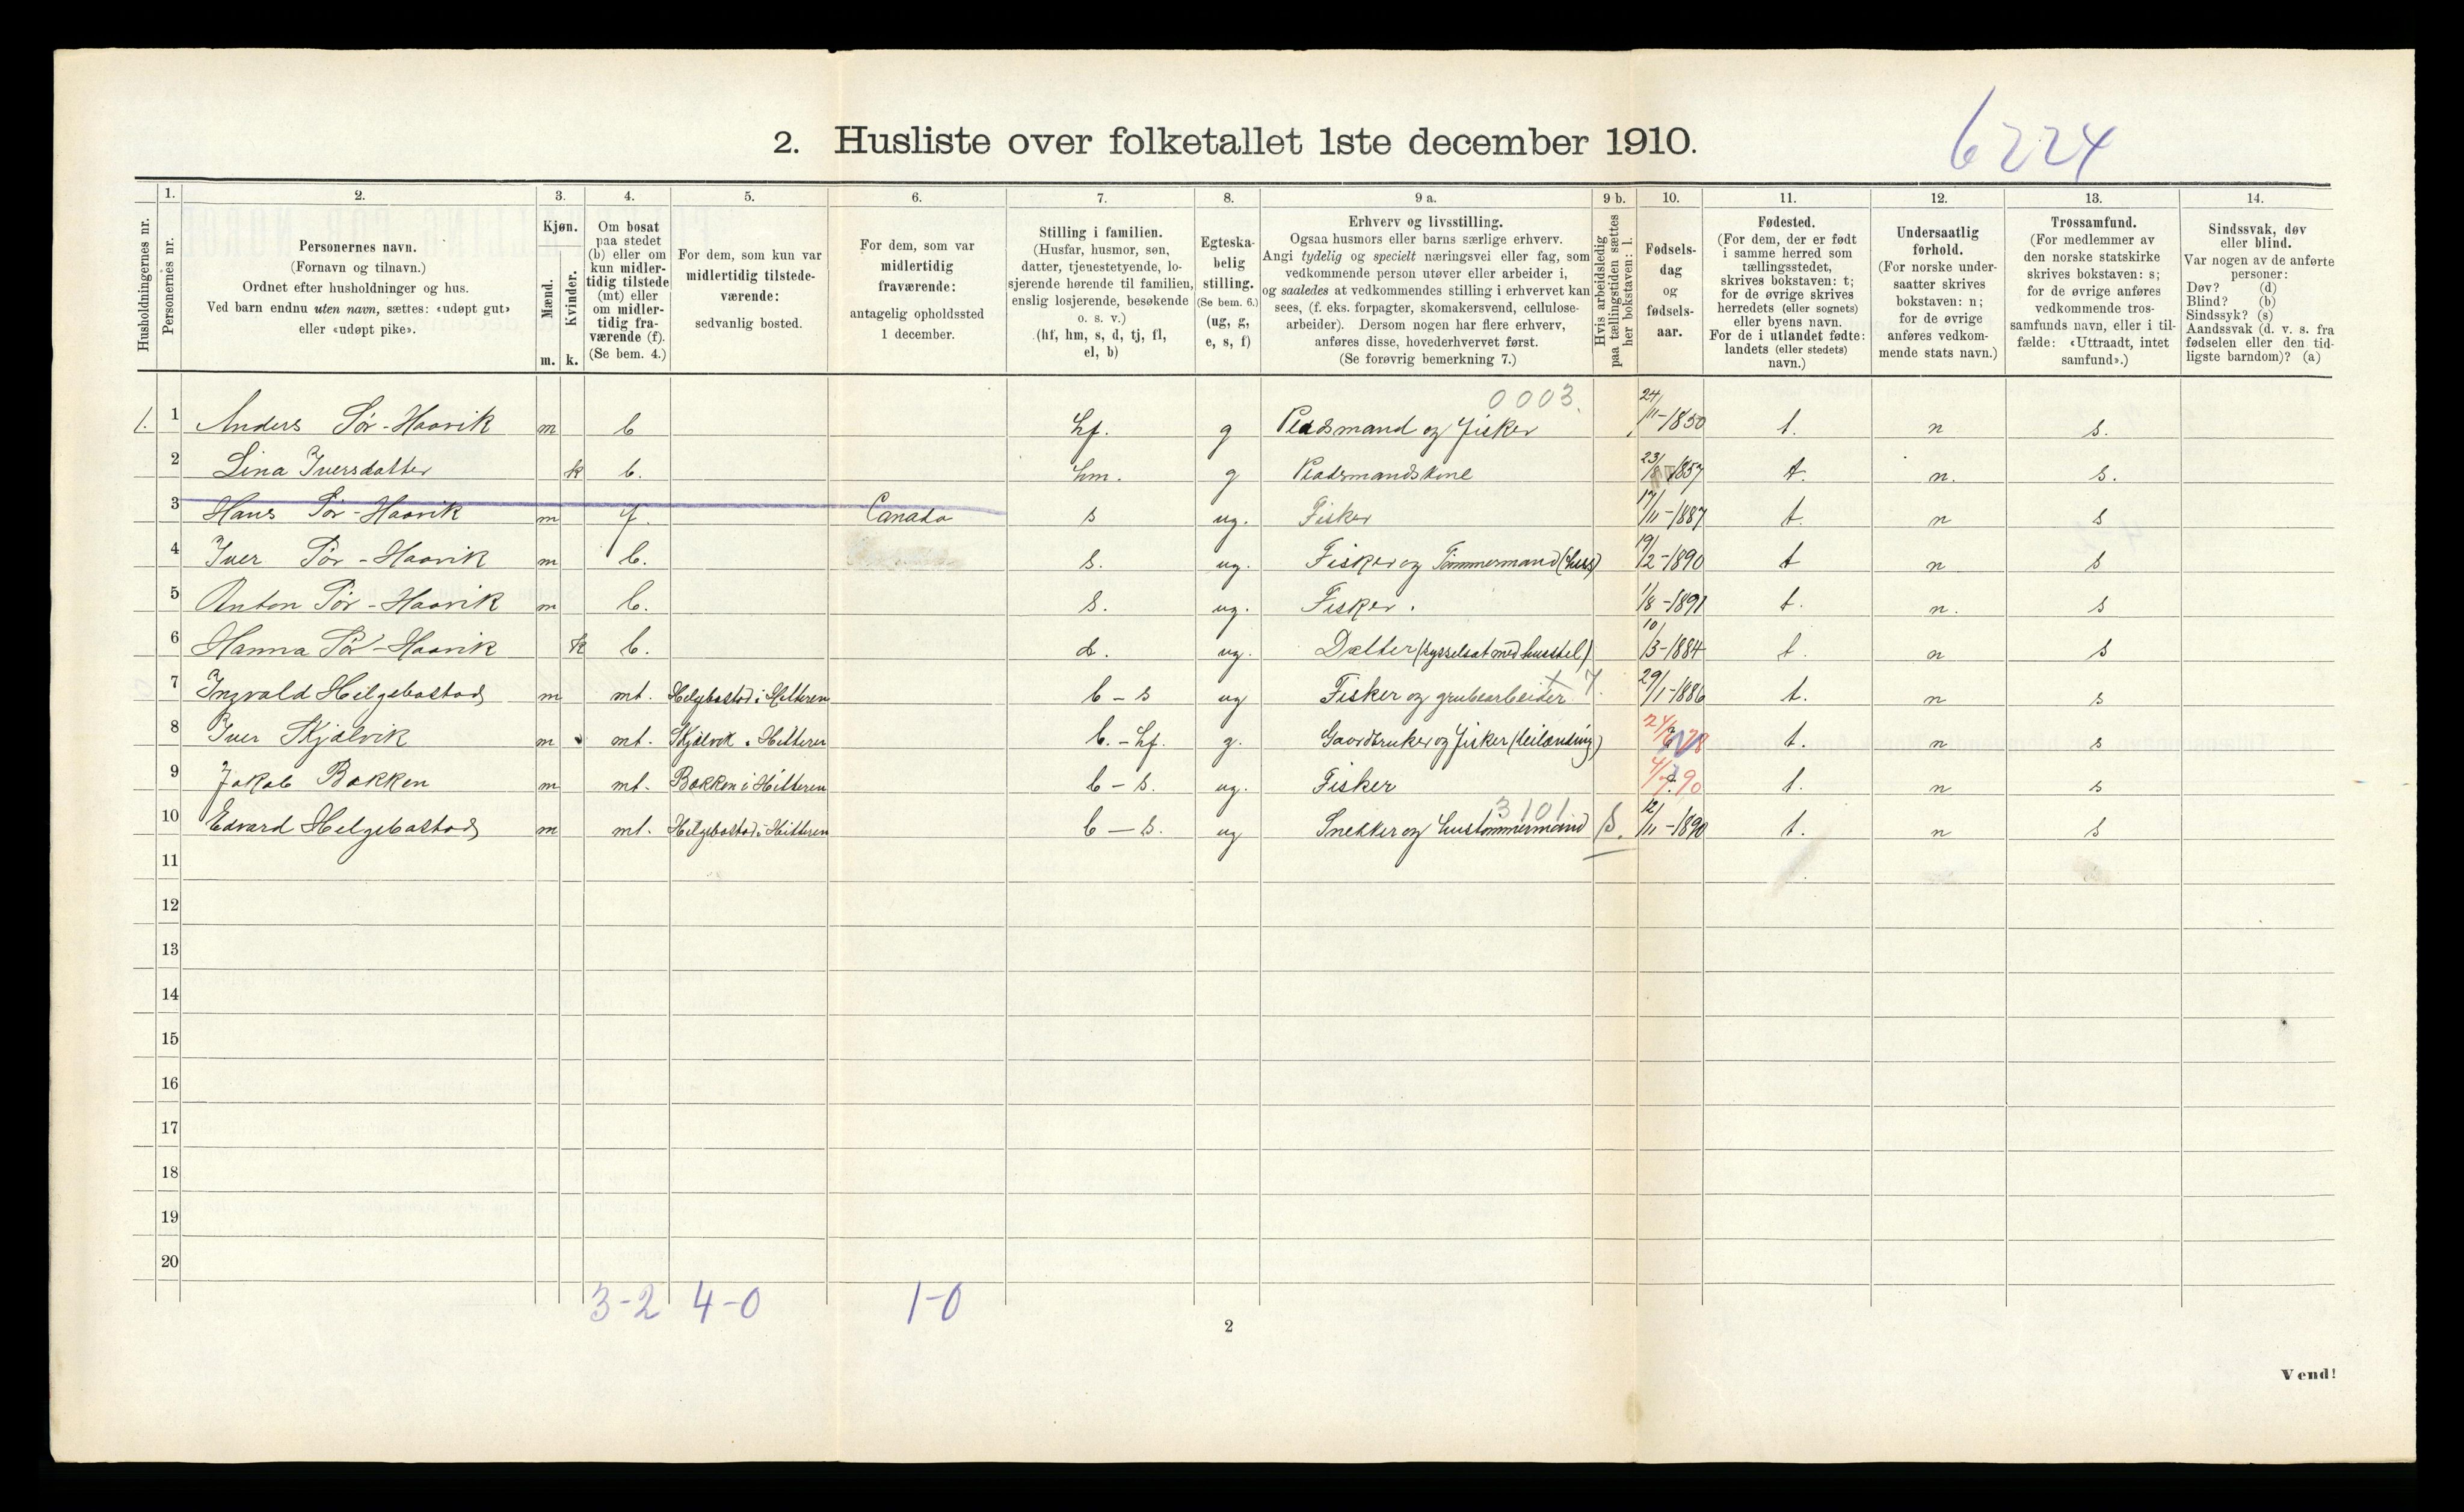 6224
2. Husliste over folketallet 1ste december 1910.
Husholdningernes nr.
1. Personernes nr.
2. Personernes navn. (Fornavn og tilnavn.) Ordnet efter husholdninger og hus. Ved barn endnu uten navn, sættes: «udøpt gut» eller «udøpt pike».
3. Kjøn. Mænd. m. Kvinder. k.
4. Om bosat paa stedet (b) eller om kun midlertidig tilstede (mt) eller om midlertidig fraværende (f). (Se bem. 4.)
5. For dem, som kun var midlertidig tilstedeværende: sedvanlig bosted.
6. For dem, som var midlertidig fraværende: antagelig opholdssted 1 december.
7. Stilling i familien. (Husfar, husmor, søn, datter, tjenestetyende, losjerende hørende til familien, enslig losjerende, besøkende o. s. v.) (hf, hm, s, d, tj, fl, el, b)
8. Egteskabelig stilling. (Se bem. 6.) (ug, g, e, s, f)
9 a. Erhverv og livsstilling. Ogsaa husmors eller barns særlige erhverv. Angi tydelig og specielt næringsvei eller fag, som vedkommende person utøver eller arbeider i, og saaledes at vedkommendes stilling i erhvervet kan sees, (f. eks. forpagter, skomakersvend, cellulosearbeider). Dersom nogen har flere erhverv, anføres disse, hovederhvervet først. (Se forøvrig bemerkning 7.)
9 b. Hvis arbeidsledig paa tællingstiden sættes her bokstaven: l.
10. Fødselsdag og fødselsaar.
11. Fødested. (For dem, der er født i samme herred som tællingsstedet, skrives bokstaven: t; for de øvrige skrives herredets (eller sognets) eller byens navn. For de i utlandet fødte: landets (eller stedets) navn.)
12. Undersaatlig forhold. (For norske undersaatter skrives bokstaven: n; for de øvrige anføres vedkommende stats navn.)
13. Trossamfund. (For medlemmer av den norske statskirke skrives bokstaven: s; for de øvrige anføres vedkommende trossamfunds navn, eller i tilfælde: «Uttraadt, intet samfund».)
14. Sindssvak, døv eller blind. Var nogen av de anførte personer: Døv? (d) Blind? (b) Sindssyk? (s) Aandssvak (d. v. s. fra fødselen eller den tidligste barndom)? (a)
0003.
1. 1 Anders Sør-Haavik m b hf. g Pladsmand og fisker 24/11-1850 t. n s.
2 Lina Iversdatter k b. hm. g Pladsmandskone 23/8 1857 t. n. s.
3 Hans Sør-Haavik m f. Canada s ug. Fisker 17/11-1887 t. n s
4 Iver Sør-Haavik m b. s. ug. Fisker og Tømmermand (hus) 19/2-1890 t n s
5 Anton Sør-Haavik m b. s. ug. Fisker. 1/8-1891 t. n. s
6 Hanna Sør-Haavik k b. d. ug. Datter (sysselsat med husstel) 10/3-1884 t. n s
7 Ingvald Helgebostad m mt. Helgebostad i Hitteren b-s ug Fisker og grubearbeider + 7. 29/1-1886 t. n s
8 Iver Skjælvik m mt. Skjælvik i Hitteren b.-hf. g. Gaardbruker og fisker (leilænding) 24/6 78 t. n s
9 Jakob Bakken m mt. Bakken i Hitteren b-s. ug. Fisker 4/7 90 t. n s
3101
10 Edvard Helgebostad m mt. Helgebostad i Hitteren b-s. ug Snekker og hustømmermand s. 12/11-1890 t. n s
11
12
13
14
15
16
17
18
19
20
3-2 4-0 1-0
2
Vend!